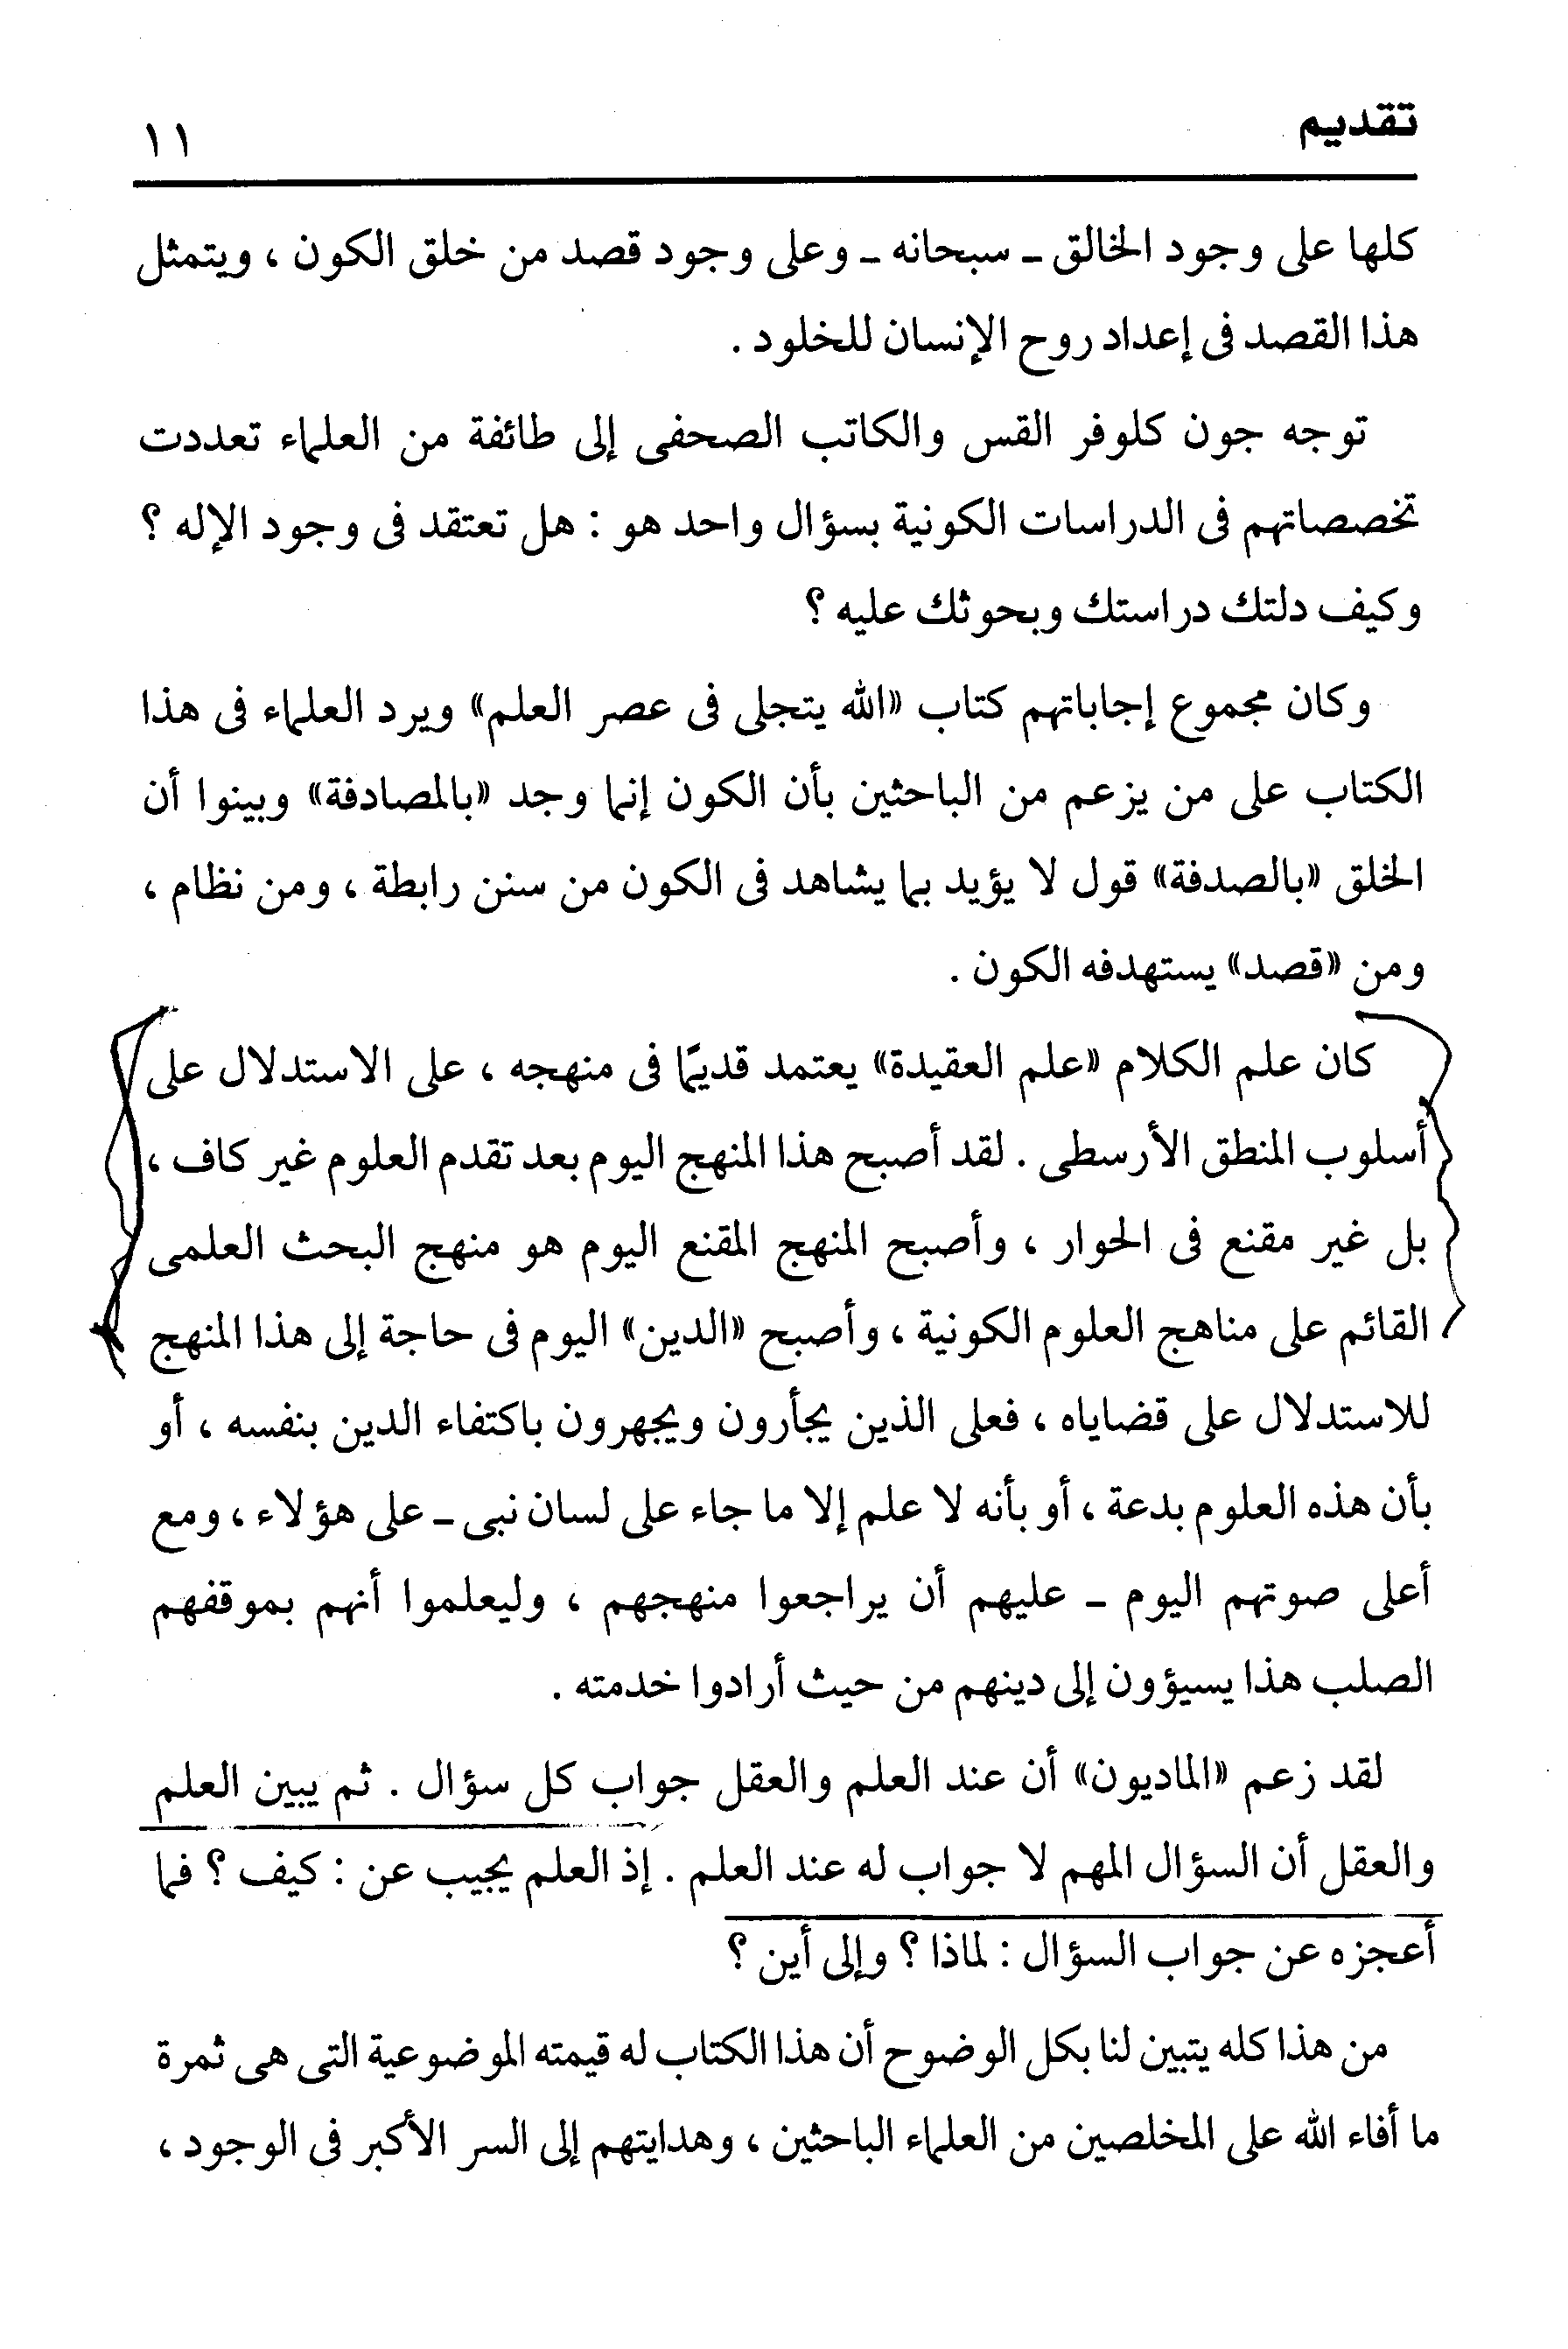 تقديم
١١
كلها على وجود الخالق ـ سبحانه ـ وعلى وجود قصد من خلق الكون ، ويتمثل
هذا القصد فى إعداد روح الإنسان للخلود .
توجه جون كلوفر القس والكاتب الصحفى إلى طائفة من العلماء تعددت
تخصصاتهم فى الدراسات الكونية بسؤال واحد هو : هل تعتقد فى وجود الإله ؟
وكيف دلتك دراستك وبحوثك عليه ؟
وكان مجموع إجاباتهم كتاب «الله يتجلى فى عصر العلم» ويرد العلماء فى هذا
الكتاب على من يزعم من الباحثين بأن الكون إنما وجد «بالمصادفة» وبينوا أن
الخلق «بالصدفة» قول لا يؤيد بما يشاهد فى الكون من سنن رابطة ، ومن نظام ،
ومن «قصد» يستهدفه الكون .
كان علم الكلام «علم العقيدة» يعتمد قديمًا فى منهجه ، على الاستدلال على
أسلوب المنطق الأرسطى . لقد أصبح هذا المنهج اليوم بعد تقدم العلوم غير كاف ،
بل غير مقنع فى الحوار ، وأصبح المنهج المقنع اليوم هو منهج البحث العلمى
القائم على مناهج العلوم الكونية ، وأصبح «الدين» اليوم فى حاجة إلى هذا المنهج
للاستدلال على قضاياه ، فعلى الذين يجأرون ويجهرون باكتفاء الدين بنفسه ، أو
بأن هذه العلوم بدعة ، أو بأنه لا علم إلا ما جاء على لسان نبى ـ على هؤلاء ، ومع
أعلى صوتهم اليوم ـ عليهم أن يراجعوا منهجهم ، وليعلموا أنهم بموقفهم
الصلب هذا يسيؤون إلى دينهم من حيث أرادوا خدمته .
لقد زعم «الماديون» أن عند العلم والعقل جواب كل سؤال . ثم يبين العلم
والعقل أن السؤال المهم لا جواب له عند العلم . إذ العلم يجيب عن : كيف ؟ فما
أعجزه عن جواب السؤال : لماذا ؟ وإلى أين ؟
من هذا كله يتبين لنا بكل الوضوح أن هذا الكتاب له قيمته الموضوعية التى هى ثمرة
ما أفاء الله على المخلصين من العلماء الباحثين ، وهدايتهم إلى السر الأكبر فى الوجود ،